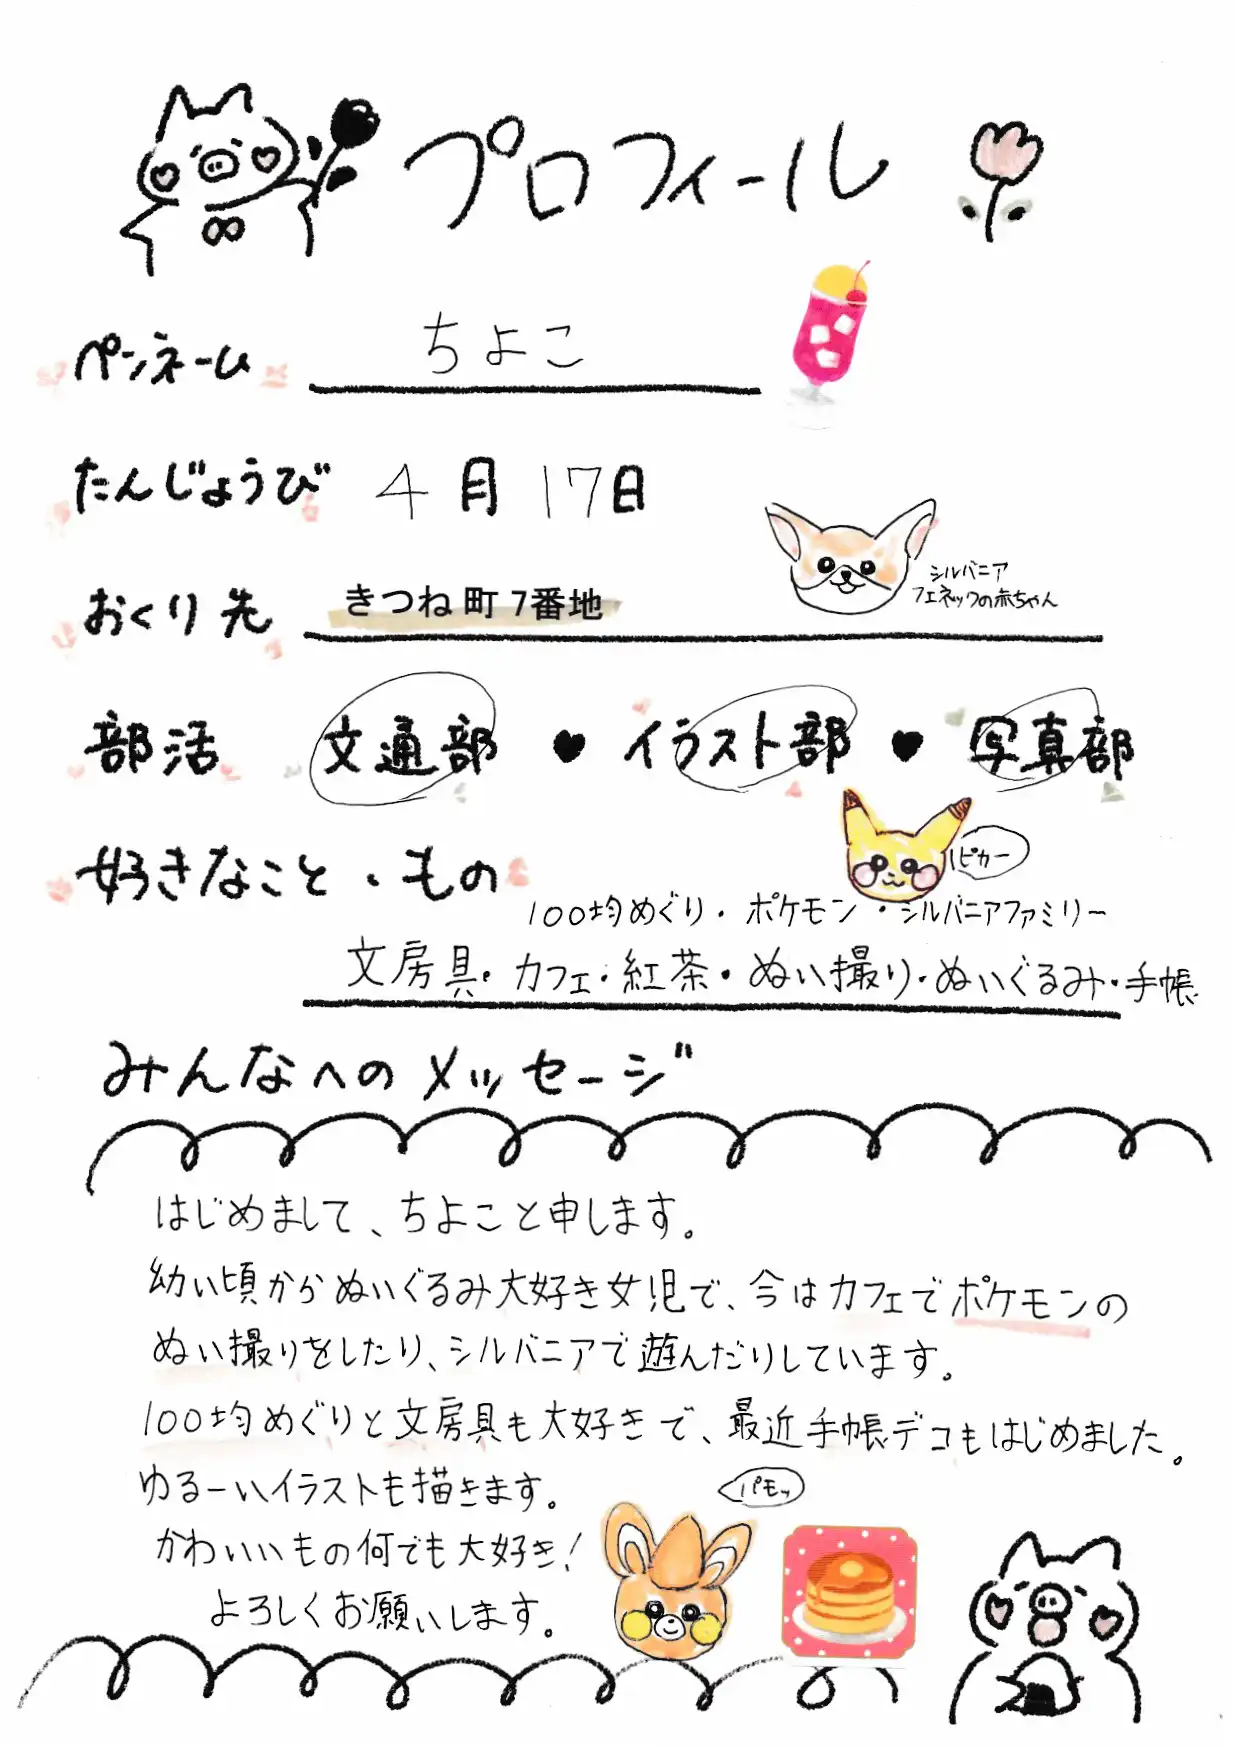 プロフィール
ペンネーム ちよこ
たんじょうび 4月17日
シルバニア
フェネックの赤ちゃん
おくり先 きつね町7番地
部活 文通部 ♥ イラスト部 ♥ 写真部
ピカー
好きなこと・もの
100均めぐり・ポケモン・シルバニアファミリー
文房具・カフェ・紅茶・ぬい撮り・ぬいぐるみ・手帳
みんなへのメッセージ
はじめまして、ちよこと申します。
幼い頃からぬいぐるみ大好き女児で、今はカフェでポケモンの
ぬい撮りをしたり、シルバニアで遊んだりしています。
100均めぐりと文房具も大好きで、最近手帳デコもはじめました。
ゆるーいイラストも描きます。
パモッ
かわいいもの何でも大好き!
よろしくお願いします。